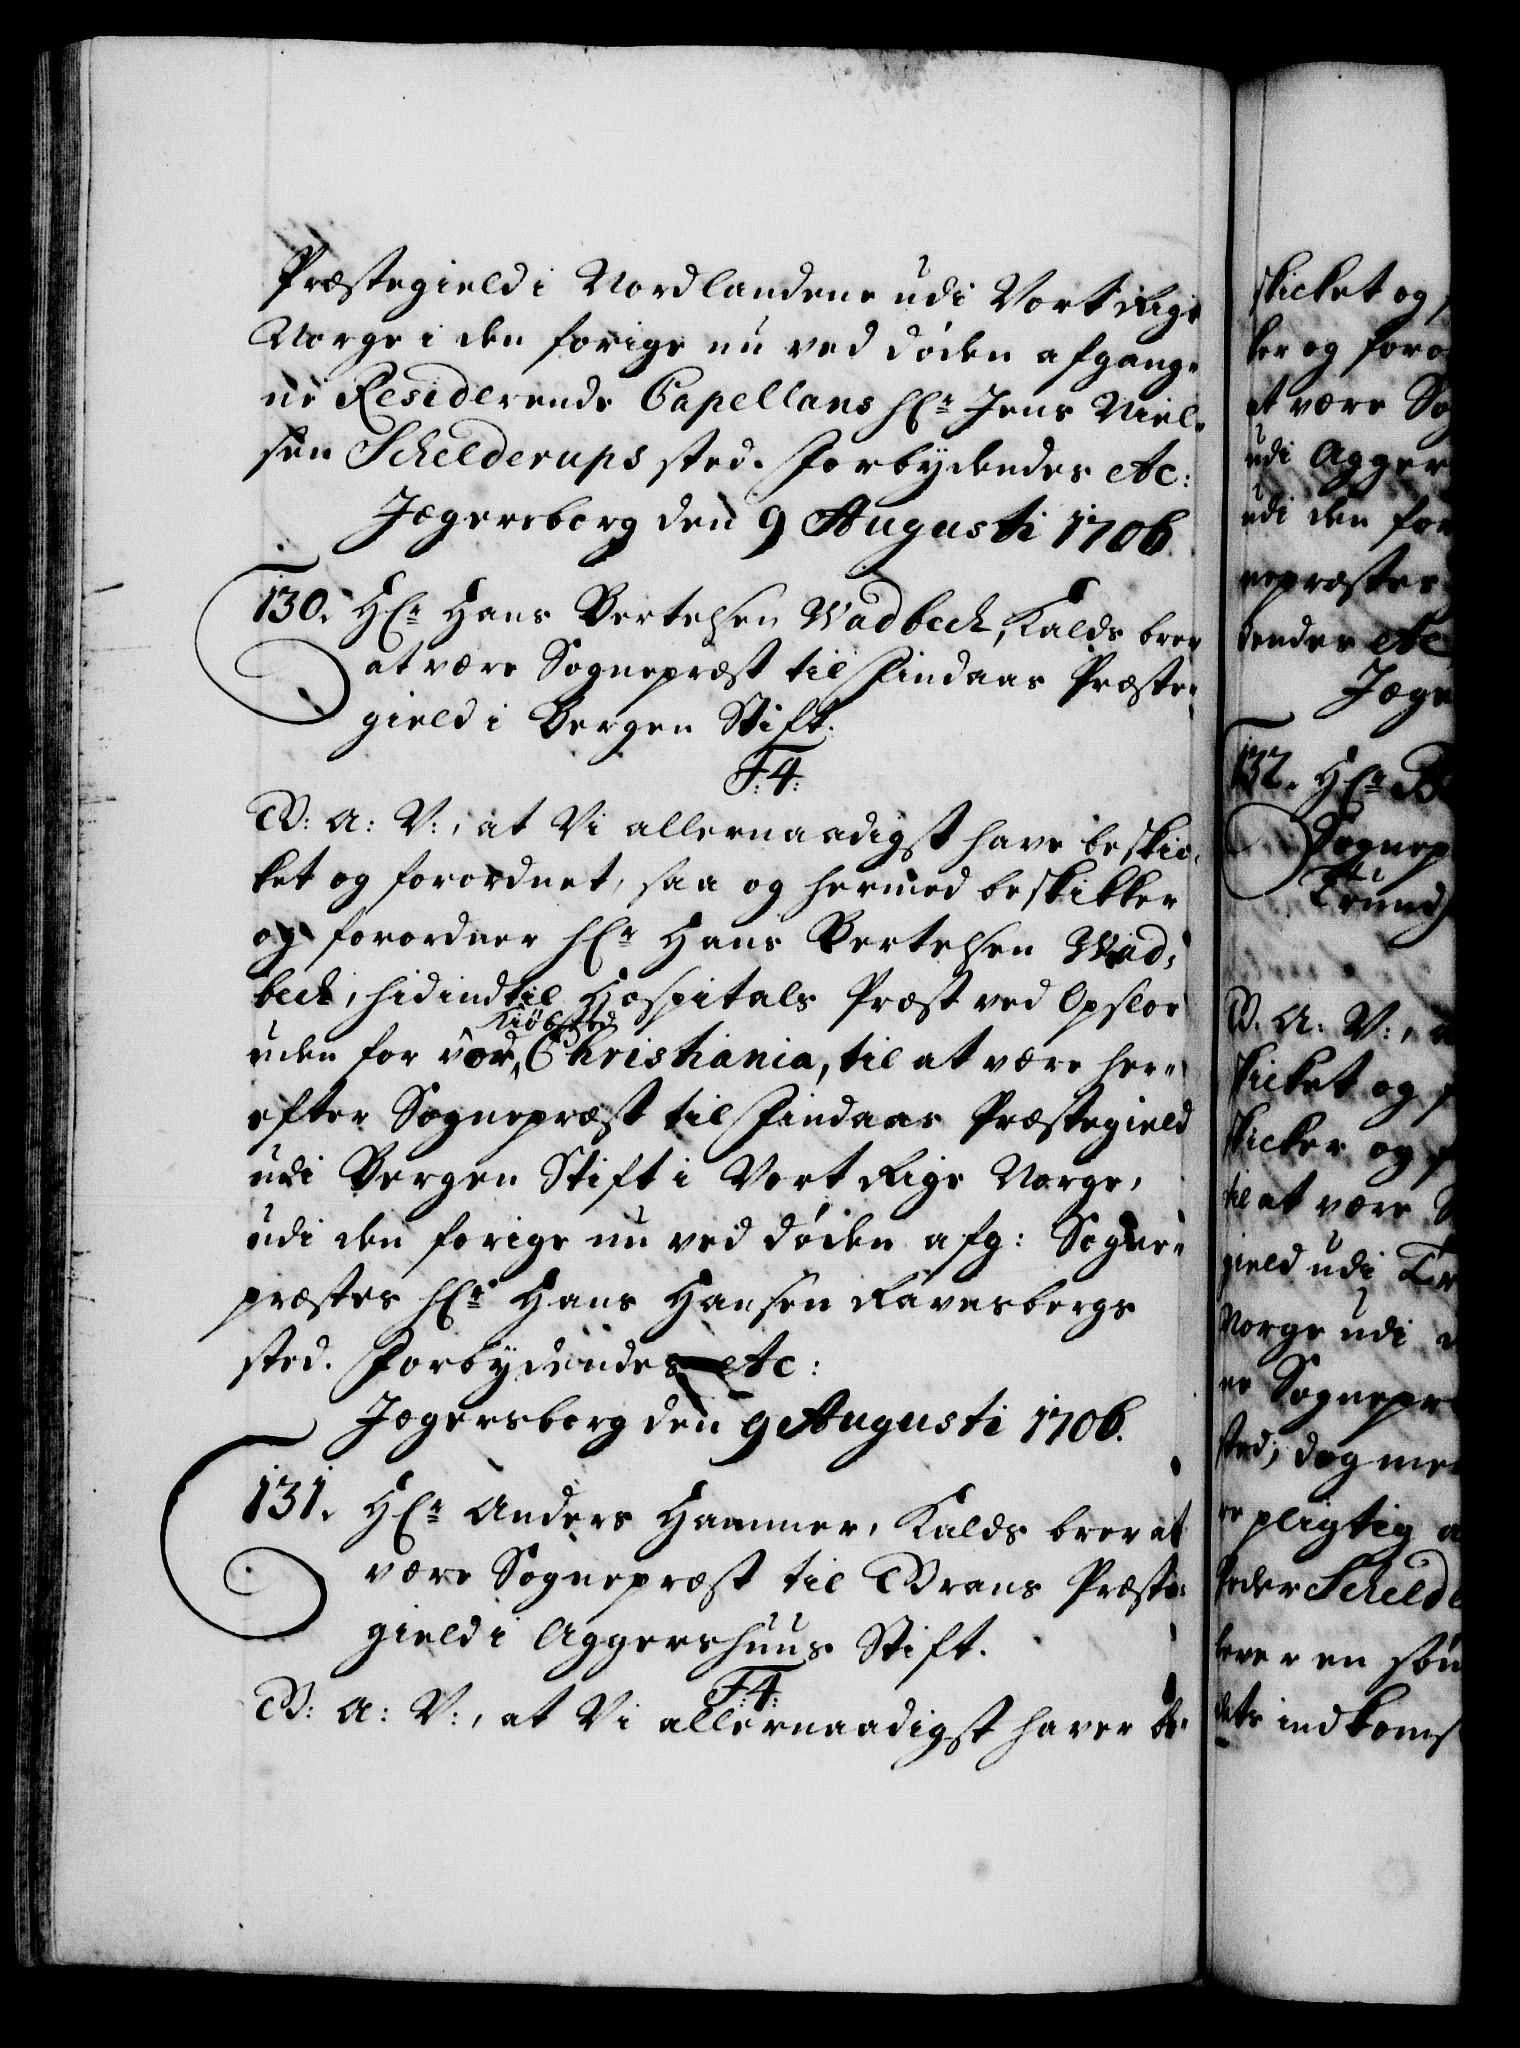 Præstegield i Nordlandene udi Vort Rige
Norge i den forige nu ved døden afgang-
ne Residerende Capellans hr Jens Niel-
sen Schelderups sted. Forbydendes etc:
Jægersborg den 9 Augusti 1706
130. Hr Hans Bertelsen Wadbech, Kalds brev
at være Sognepræst til Lindaas Præste-
gield i Bergen Stift.
F:4:
W: A: V:, at Vi allernaadigst have beskic-
ket og forordnet, saa og hermed beskikker
og forordner hr Hans Bertelsen Wad-
bech, hidindtil Hospitals Præst ved Opsloe
Kiøbsted
uden for vor Christiania, til at være her-
efter Sognepræst til Lindaas Præstegield
udi Bergen Stift i Vort Rige Norge,
udi den forige nu ved døden afg: Sogne-
præstes hr Hans Hansen Ravensbergs
sted. Forbydendes etc:
Jægersborg den 9 Augusti 1706.
131. Hr Anders Hammer, Kalds brev at
være Sognepræst til Grans Præste-
gield i Aggershuus Stift.
F:4:
W: A: V:, at Vi allernaadigst haver be-
skicket og
ker og foro
at være So
udi Agger
udi den for
nepræstes
dendes etc
Jæge
132. Hr B
Sognep
Trund
W: A: V:, a
skicket og f
skicker og f
til at være S
gield udi Tr
Norge udi d
ne Sognepr
sted; dog me
re pligtig a
Peder Scheld
lever en søn
dets indkoms